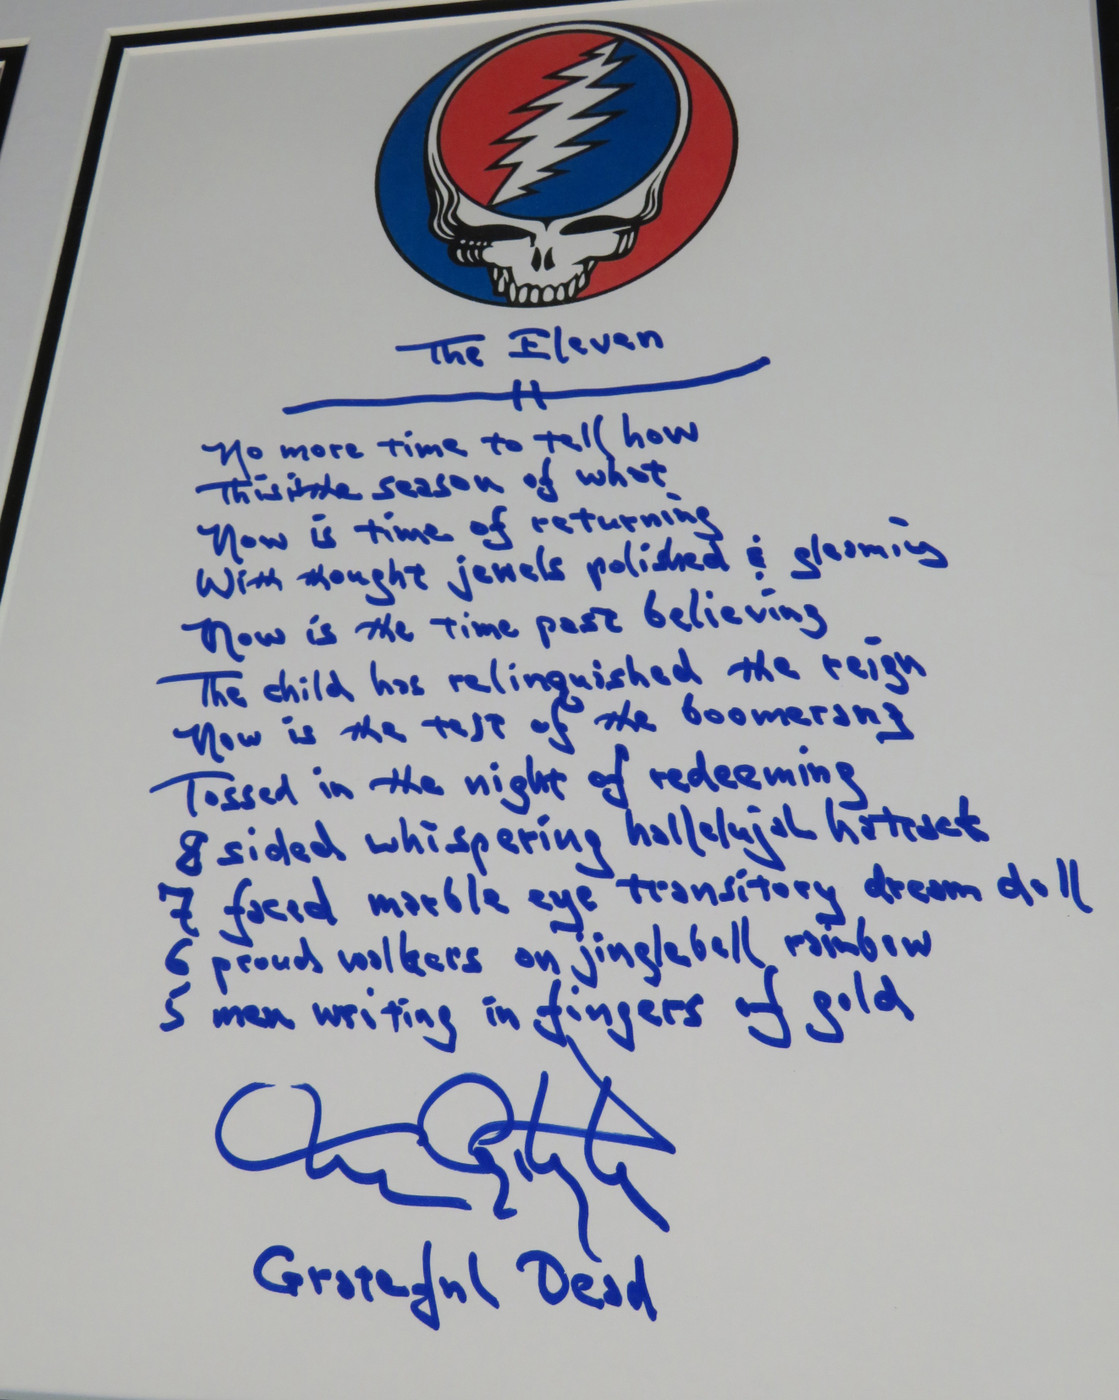 The Eleven
No more time to tell how
This is the season of what
Now is time of returning
With thought jewels polished & gleaming
Now is the time past believing
The child has relinquished the reign
Now is the test of the boomerang
Tossed in the night of redeeming
8 sided whispering hallelujah hatrack
7 faced marble eye transitory dream doll
6 proud walkers on jinglebell rainbow
5 men writing in fingers of gold
Grateful Dead